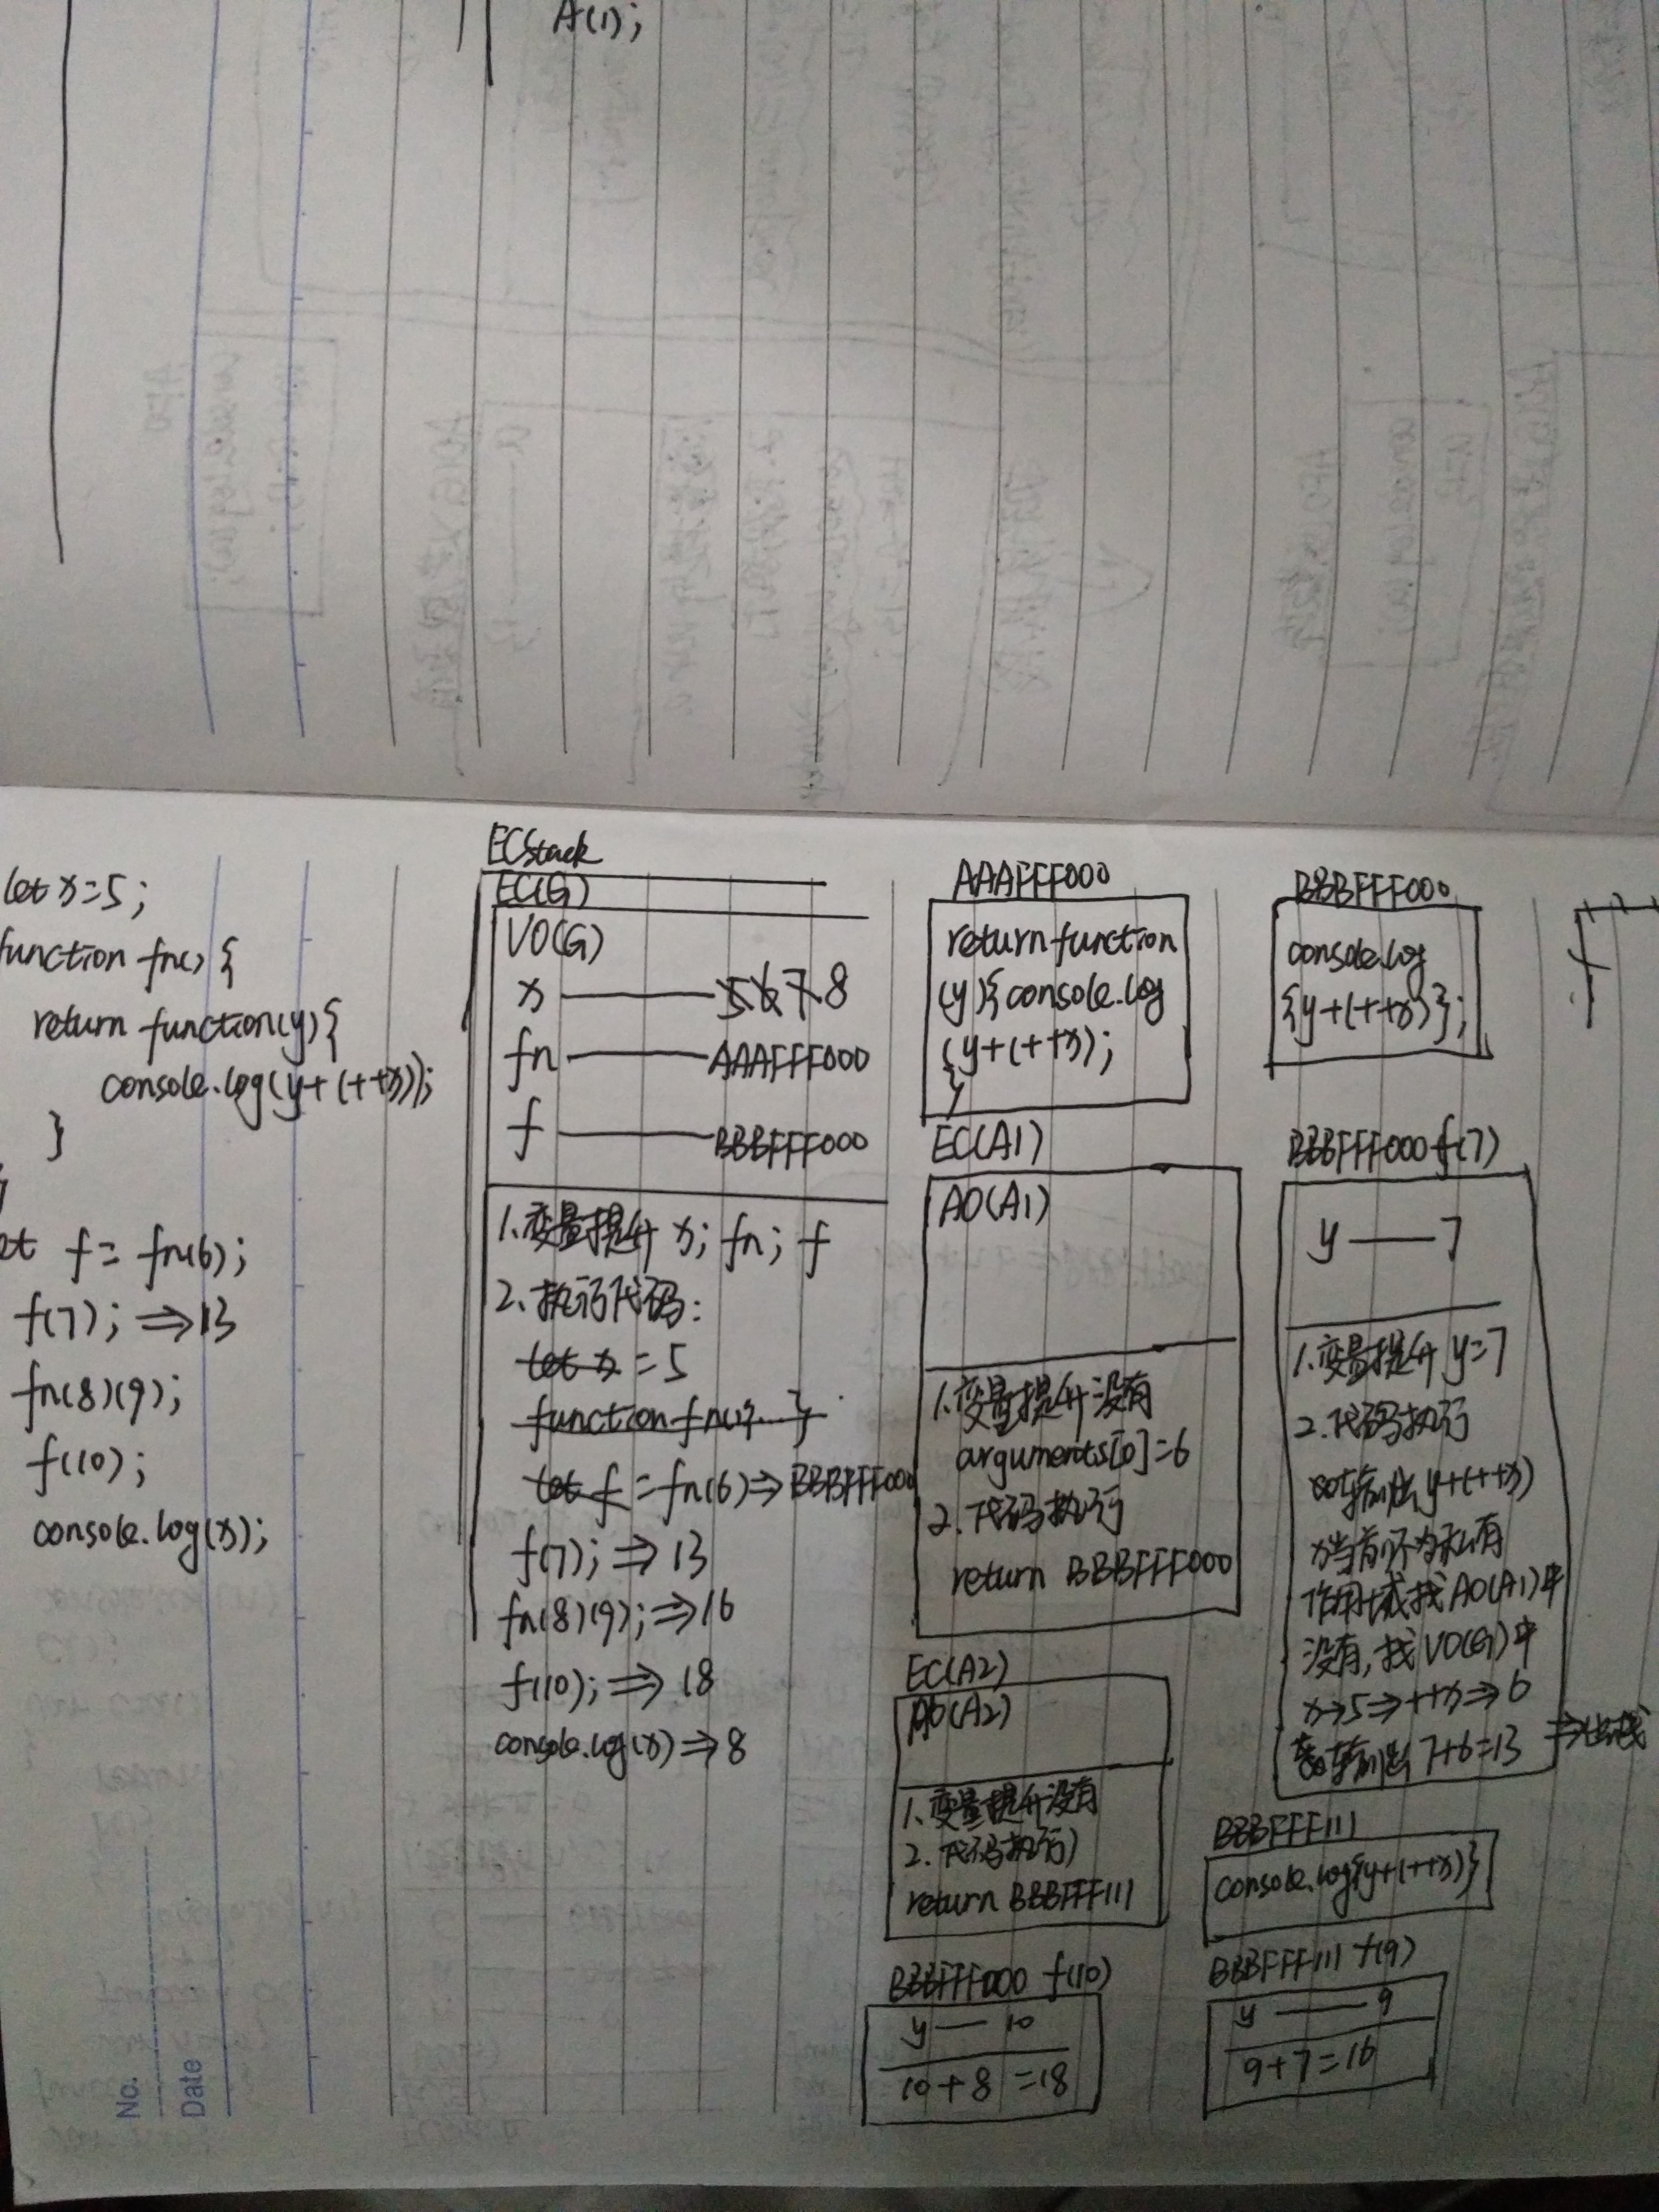 A(1);
let x=5;
function fn() {
return function(y){
console.log(y+(++x));
}
}
et f = fn(6);
f(7); ⇒13
fn(8)(9);
f(10);
console.log(x);
ECStack
EC(G)
VO(G)
x —— 5 6 7 8
fn —— AAAFFF000
f —— BBBFFF000
1.变量提升 x; fn; f
2.执行代码:
let x = 5
function fn(){...}
let f = fn(6)⇒BBBFFF000
f(7); ⇒ 13
fn(8)(9); ⇒16
f(10); ⇒ 18
console.log(x) ⇒ 8
AAAFFF000
return function
(y){console.log
(y+(++x);
}
EC(A1)
AO(A1)
1.变量提升没有
arguments[0]=6
2.代码执行
return BBBFFF000
EC(A2)
AO(A2)
1.变量提升没有
2.代码执行
return BBBFFF111
BBBFFF000 f(10)
y — 10
10+8 =18
BBBFFF000
console.log
{y+(++x)};
BBBFFF000 f(7)
y — 7
1.变量提升 y=7
2.代码执行
输出 y+(++x)
x当前不为私有
作用域找AO(A1)中
没有,找VO(G)中
x→5⇒++x⇒6
输出 7+6=13 ⇒出栈
BBBFFF111
console.log{y+(++x)}
BBBFFF111 f(9)
y — 9
9+7=16
No.
Date